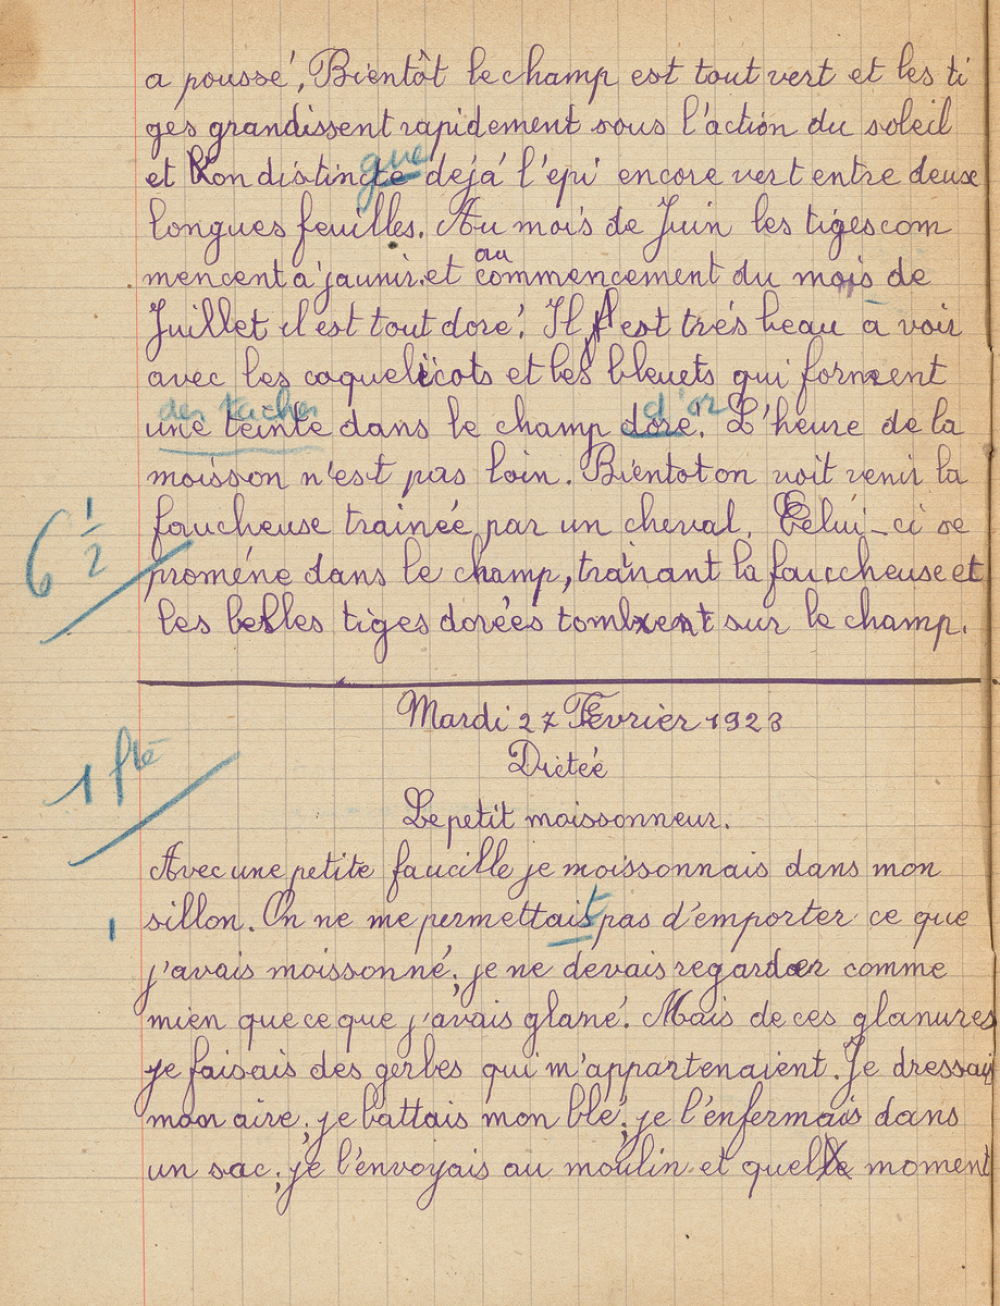 a poussé. Bientôt le champ est tout vert et les ti
ges grandissent rapidement sous l'action du soleil
que
et l'on distincte déjà l'épi encore vert entre deux
longues feuilles. Au mois de Juin les tiges com
au
mencent à jaunir et commencement du mois de
Juillet il est tout doré. Il est très beau a voir
avec les coquelicots et les bleuets qui forment
des taches d'or
une teinte dans le champ doré. L'heure de la
moisson n'est pas loin. Bientot on voit venir la
faucheuse trainée par un cheval. Celui-ci se
6 1/2
promène dans le champ, traînant la fauccheuse et
les belles tiges dorées tombent sur le champ.
Mardi 27 Février 1923
1 fte
Dictée
Le petit moissonneur.
Avec une petite faucille je moissonnais dans mon
t
1
sillon. On ne me permettais pas d'emporter ce que
j'avais moissonné; je ne devais regarder comme
mien que ce que j'avais glané. Mais de ces glanures
je faisais des gerbes qui m'appartenaient. Je dressais
mon aire; je battais mon blé; je l'enfermais dans
un sac; je l'envoyais au moulin et quel moment